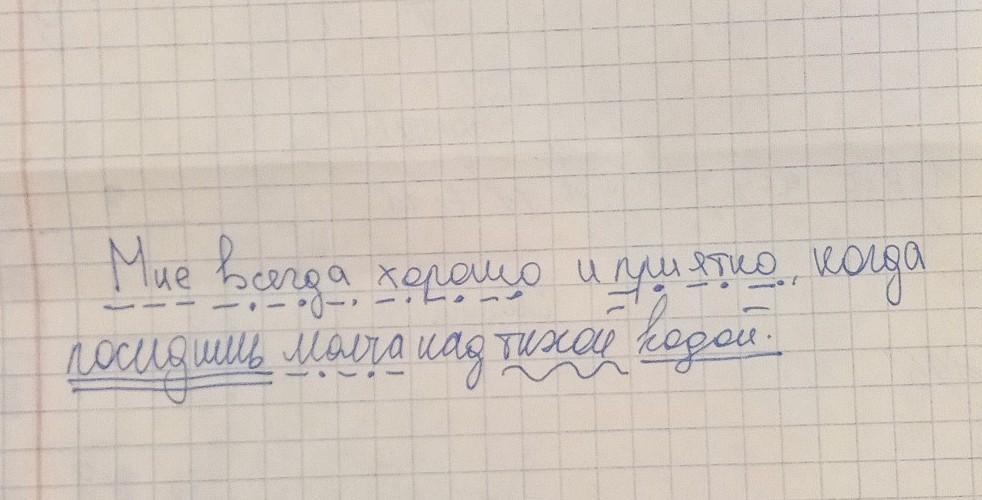 Мне всегда хорошо и приятно, когда
посидишь молча над тихой водой.